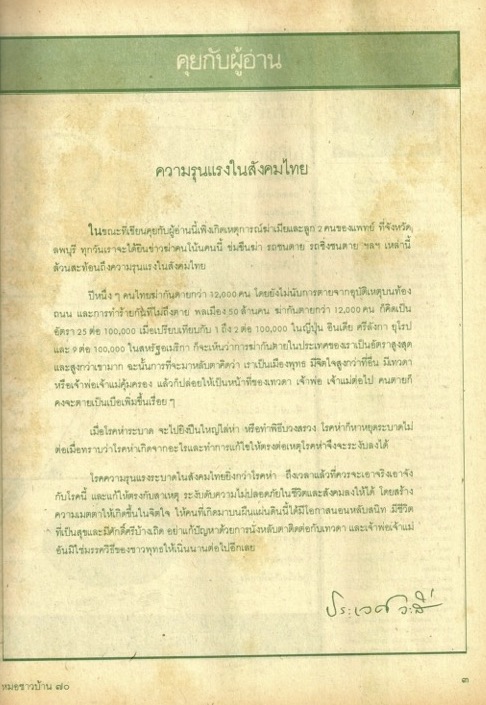 คุยกับผู้อ่าน
ความรุนแรงในสังคมไทย
ในขณะที่เขียนคุยกับผู้อ่านนี้เพิ่งเกิดเหตุการณ์ฆ่าเมียและลูก 2 คนของแพทย์ ที่จังหวัด
ลพบุรี ทุกวันเราจะได้ยินข่าวฆ่าคนโน้นคนนี้ ข่มขืนฆ่า รถชนตาย รถซิ่งชนตาย ฯลฯ เหล่านี้
ล้วนสะท้อนถึงความรุนแรงในสังคมไทย
ปีหนึ่ง ๆ คนไทยฆ่ากันตายกว่า 12,000 คน โดยยังไม่นับการตายจากอุบัติเหตุบนท้อง
ถนน และการทำร้ายกันที่ไม่ถึงตาย พลเมือง 50 ล้านคน ฆ่ากันตายกว่า 12,000 คน ก็คิดเป็น
อัตรา 25 ต่อ 100,000 เมื่อเปรียบเทียบกับ 1 ถึง 2 ต่อ 100,000 ในญี่ปุ่น อินเดีย ศรีลังกา ยุโรป
และ 9 ต่อ 100,000 ในสหรัฐอเมริกา ก็จะเห็นว่าการฆ่ากันตายในประเทศของเราเป็นอัตราสูงสุด
และสูงกว่าเขามาก ฉะนั้นการที่จะมาหลับตาคิดว่า เราเป็นเมืองพุทธ มีจิตใจสูงกว่าที่อื่น มีเทวดา
หรือเจ้าพ่อเจ้าแม่คุ้มครอง แล้วก็ปล่อยให้เป็นหน้าที่ของเทวดา เจ้าพ่อ เจ้าแม่ต่อไป คนตายก็
คงจะตายเป็นเบือเพิ่มขึ้นเรื่อย ๆ
เมื่อโรคห่าระบาด จะไปยิงปืนใหญ่ไล่ห่า หรือทำพิธีบวงสรวง โรคห่าก็หาหยุดระบาดไม่
ต่อเมื่อทราบว่าโรคห่าเกิดจากอะไรและทำการแก้ไขให้ตรงต่อเหตุโรคห่าจึงจะระงับลงได้
โรคความรุนแรงระบาดในสังคมไทยยิ่งกว่าโรคห่า ถึงเวลาแล้วที่ควรจะเอาจริงเอาจัง
กับโรคนี้ และแก้ให้ตรงกับสาเหตุ ระงับดับความไม่ปลอดภัยในชีวิตและสังคมลงให้ได้ โดยสร้าง
ความเมตตาให้เกิดขึ้นในจิตใจ ให้คนที่เกิดมาบนผืนแผ่นดินนี้ได้มีโอกาสนอนหลับสนิท มีชีวิต
ที่เป็นสุขและมีศักดิ์ศรีบ้างเถิด อย่าแก้ปัญหาด้วยการนั่งหลับตาติดต่อกับเทวดา และเจ้าพ่อเจ้าแม่
อันมิใช่มรรควิธีของชาวพุทธให้เนิ่นนานต่อไปอีกเลย
ประเวศ วะสี
หมอชาวบ้าน ๗๐
๓